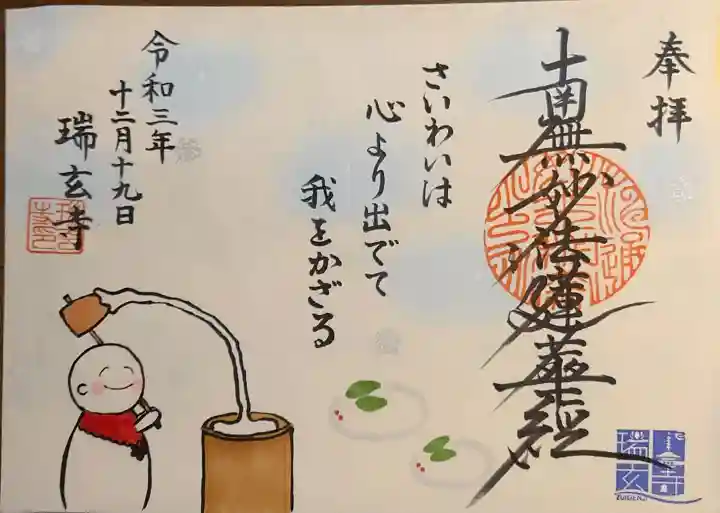 奉拝
南無妙法蓮華経
さいわいは
心より出でて
我をかざる
令和三年
十二月十九日
瑞玄寺
瑞玄
ZUIGENJI